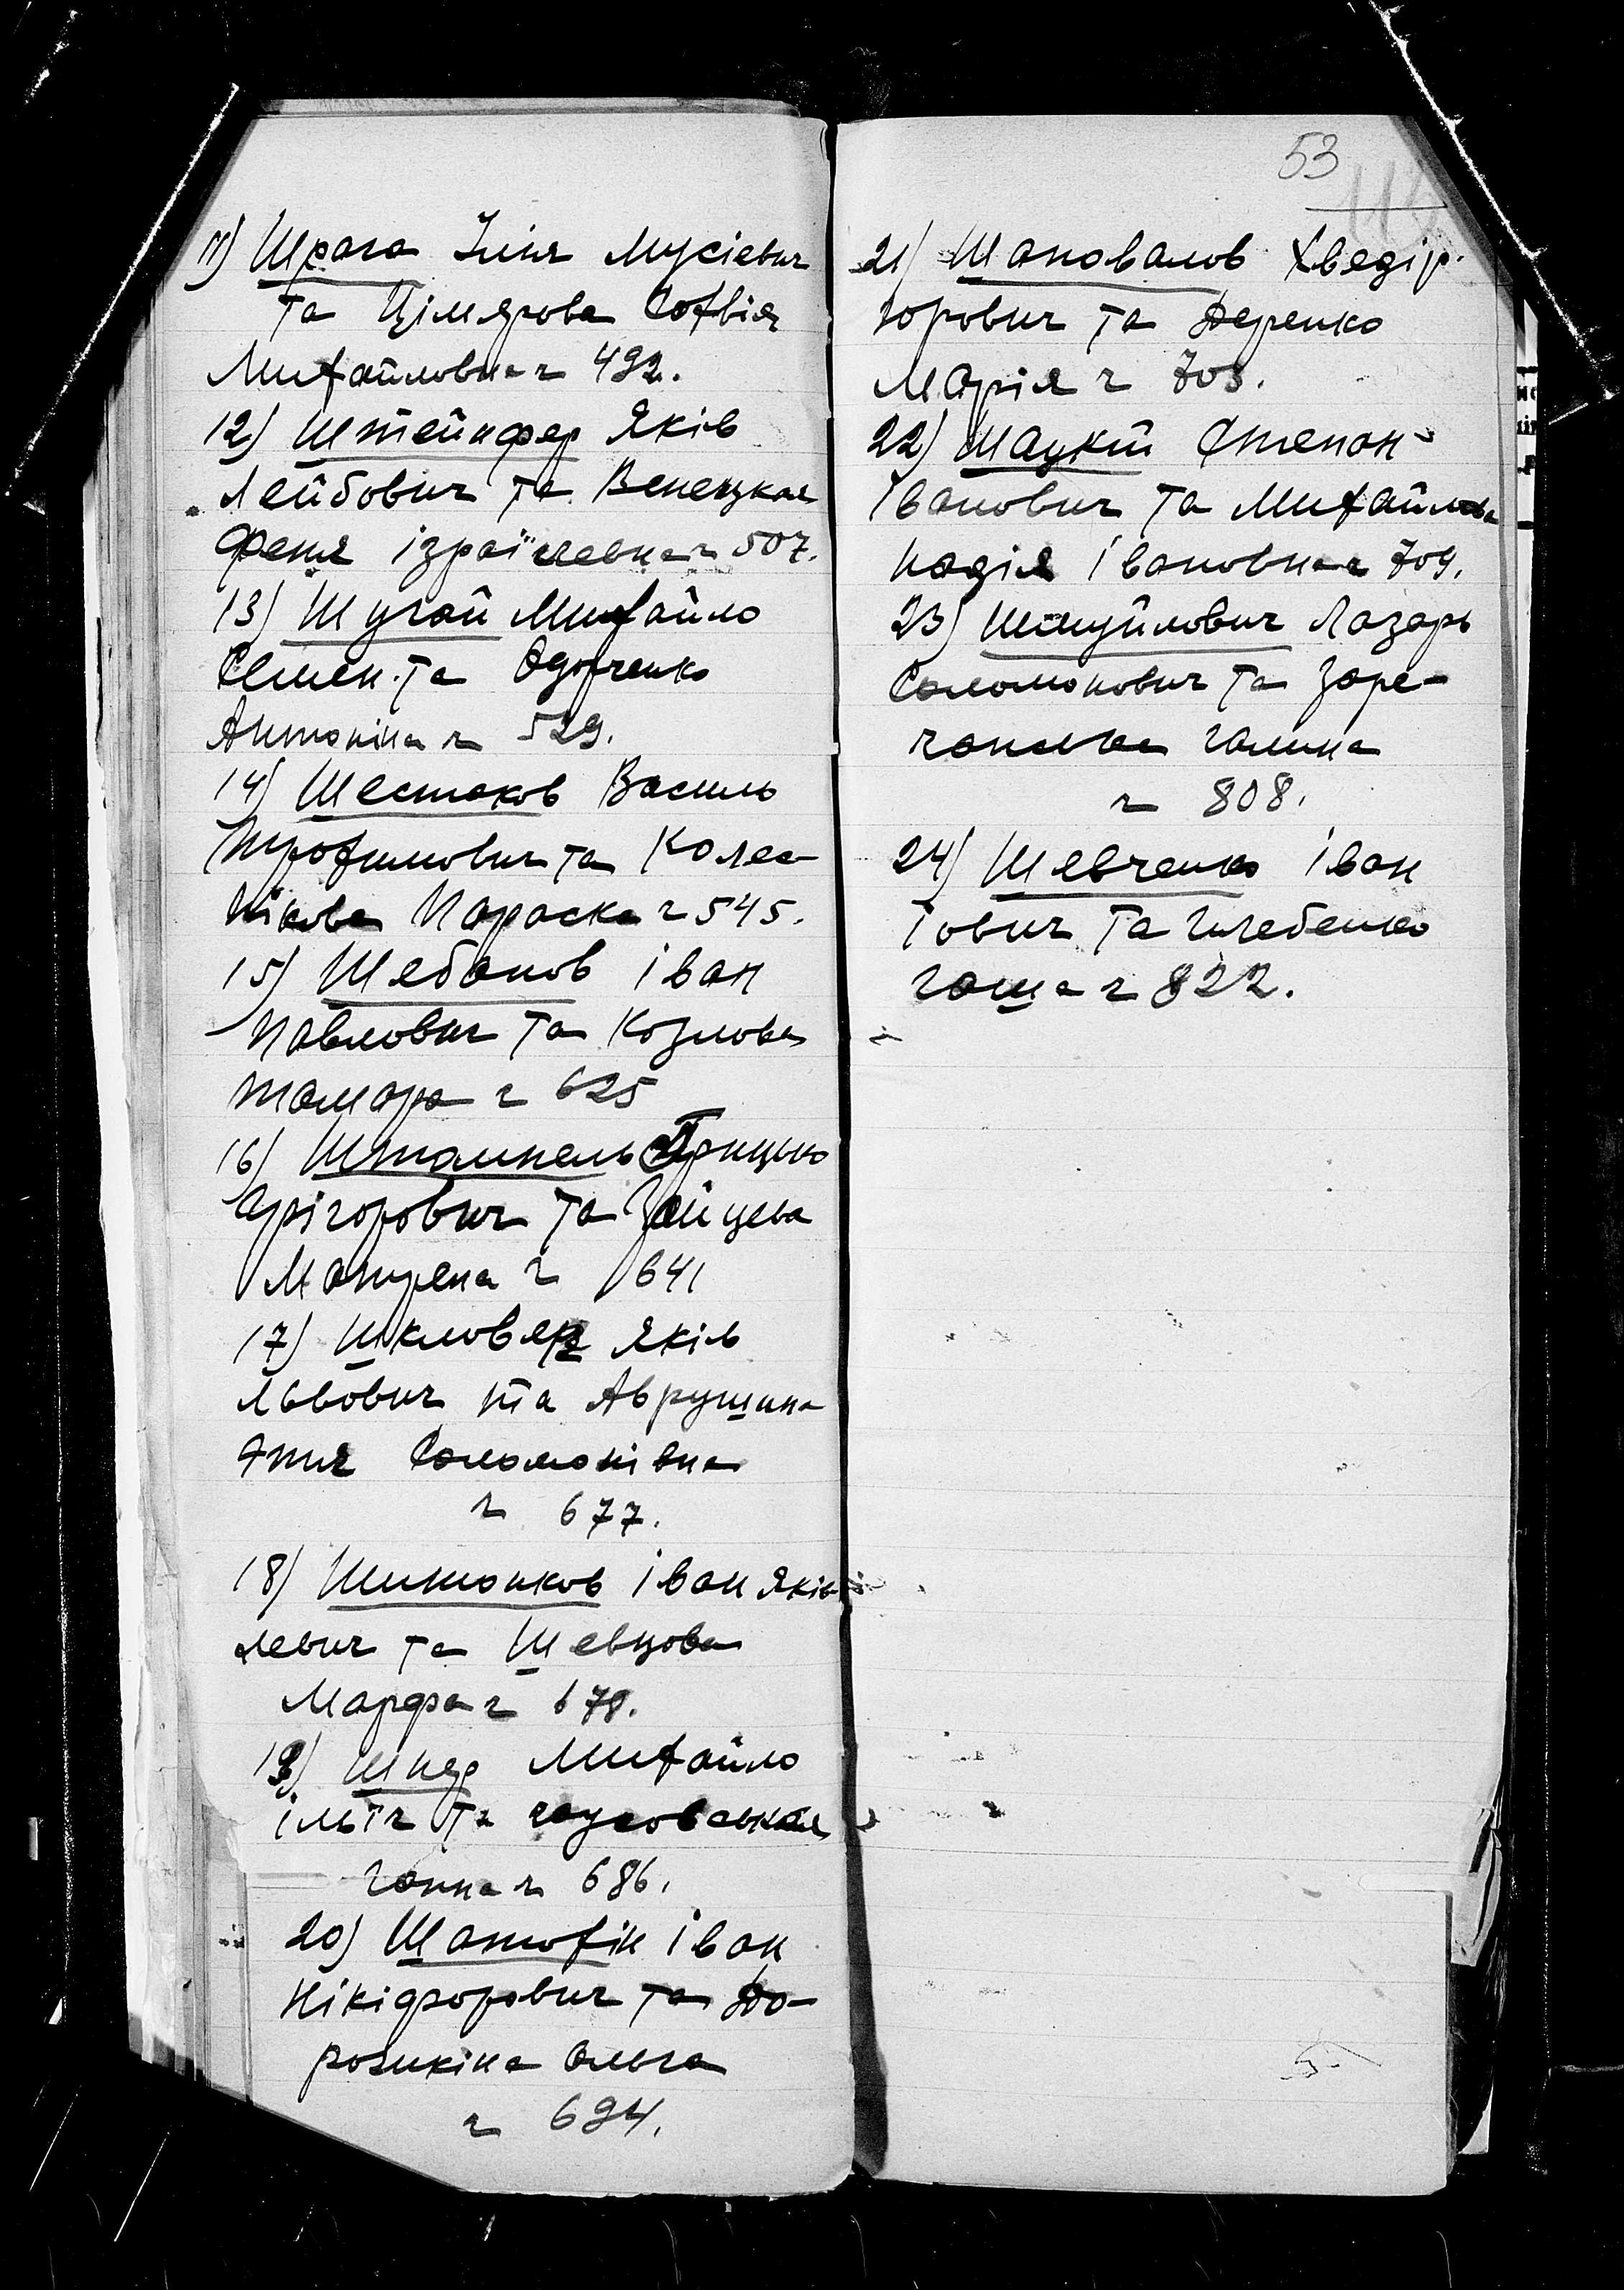 11) Шрага Ілія Мусієвич
та Цімлярова Софвія
Михайловна ч 492.
12) Штейнфер Яків
Лейбович та Венецкая
Феня ізраїлевна ч 507.
13) Шугай Михайло
Семен. та Одорченко
Антоніна ч 529.
14) Шестаков Василь
Трофимович та Колес-
нікова Параска ч 545.
15) Шебанов іван
Павлович та Козлова
Тамара ч 625
16) Штампель Грицько
Грігорович та Зайцева
Мотрена ч 641
17) Шкловяр Яків
Львович та Аврушина
Этя Соломонівна
ч 677.
18) Шитонков іван Яків
левич та Шевцова
Марфа ч 678.
19) Шнер Михайло
ільїч та
Ганна ч 686.
20) Шатохін іван
Нікіфорович та До-
рошкіна Ольга
ч 694.
53
21) Шаповалов Хведір
горович та Деренко
Марія ч 703.
22) Шаукій Степан
івановіч та Михайлова
Надія івановна ч 709.
23) Шмуйлович Лазарь
Соломонович та Заре-
Галина
ч 808.
24) Шевченко іван
іович та Глебенко
Гаша ч 822.